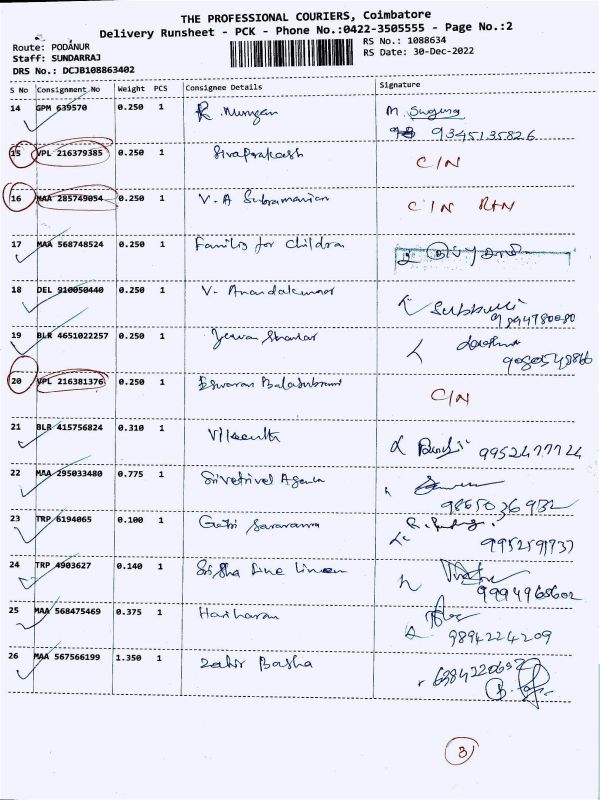 THE PROFESSIONAL COURIERS, Coimbatore
Delivery Runsheet - PCK - Phone No.:0422-3505555 - Page No.:2
Route: PODANUR
RS No.: 1088634
Staff: SUNDARRAJ
RS Date: 30-Dec-2022
DRS No.: DCJB108863402
S No Consignment No Weight PCS Consignee Details Signature
14 GPM 639570 0.250 1 R. Murugan M. Suguna
9345135826
15 VPL 216379385 0.250 1 Sivaprakash C/N
16 MAA 285749054 0.250 1 V-A Subramanian C/N RTN
17 MAA 568748524 0.250 1 Families for Children
18 DEL 910050440 0.250 1 V. Anandakumar
19 BLR 4651022257 0.250 1 Jeeva Shankar
20 VPL 216381376 0.250 1 Eswaran Balasubrami C/N
21 BLR 415756824 0.310 1 9952477724
22 MAA 295033480 0.775 1 Srivetrivel Agencies
9865036932
23 TRP 6194065 0.100 1 Saravana
24 TRP 4903627 0.140 1
9994965602
25 MAA 568475469 0.375 1 Hariharan
9894224209
26 MAA 567566199 1.350 1 Zahir Basha
3